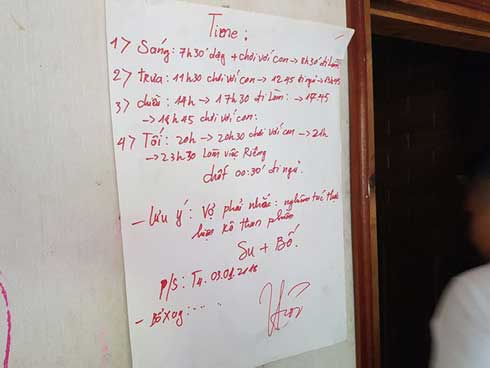 Time:
1> Sáng: 7h30' dậy + chơi với con → 8h30 đi làm
2> trưa: 11h30 chơi với con → 12h45 đi ngủ → 13h45
3> chiều: 14h → 17h30 đi làm: → 17h45
→ 19h45 chơi với con:
4> Tối: 20h → 20h30 chơi với con → 21h
→ 23h30 làm việc Riêng
chốt 00:30' đi ngủ.
- Lưu ý: Vợ phải nhắc: nghiêm túc thực
hiện kô than phiền
Su + Bố.
P/S: T4. 03.01.2018
- Bổ xug: .....